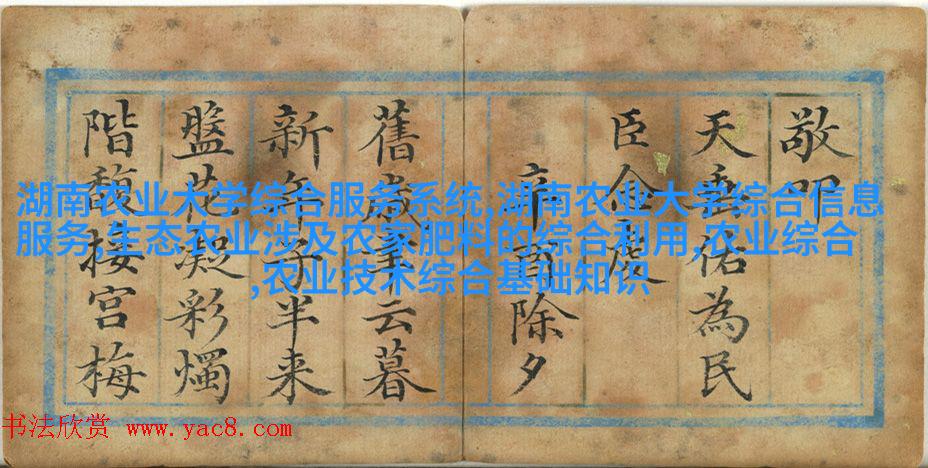 敬叩
天垂佑為民
臣
辛酉除夕
舊歲聿云暮
新年子半来
盤花凝彩燭
階馥接宫梅
湖南农业大学综合服务系统,湖南农业大学综合信息
服务,生态农业涉及农家肥料的综合利用,农业综合
,农业技术综合基础知识
书法欣赏 www.yac8.com